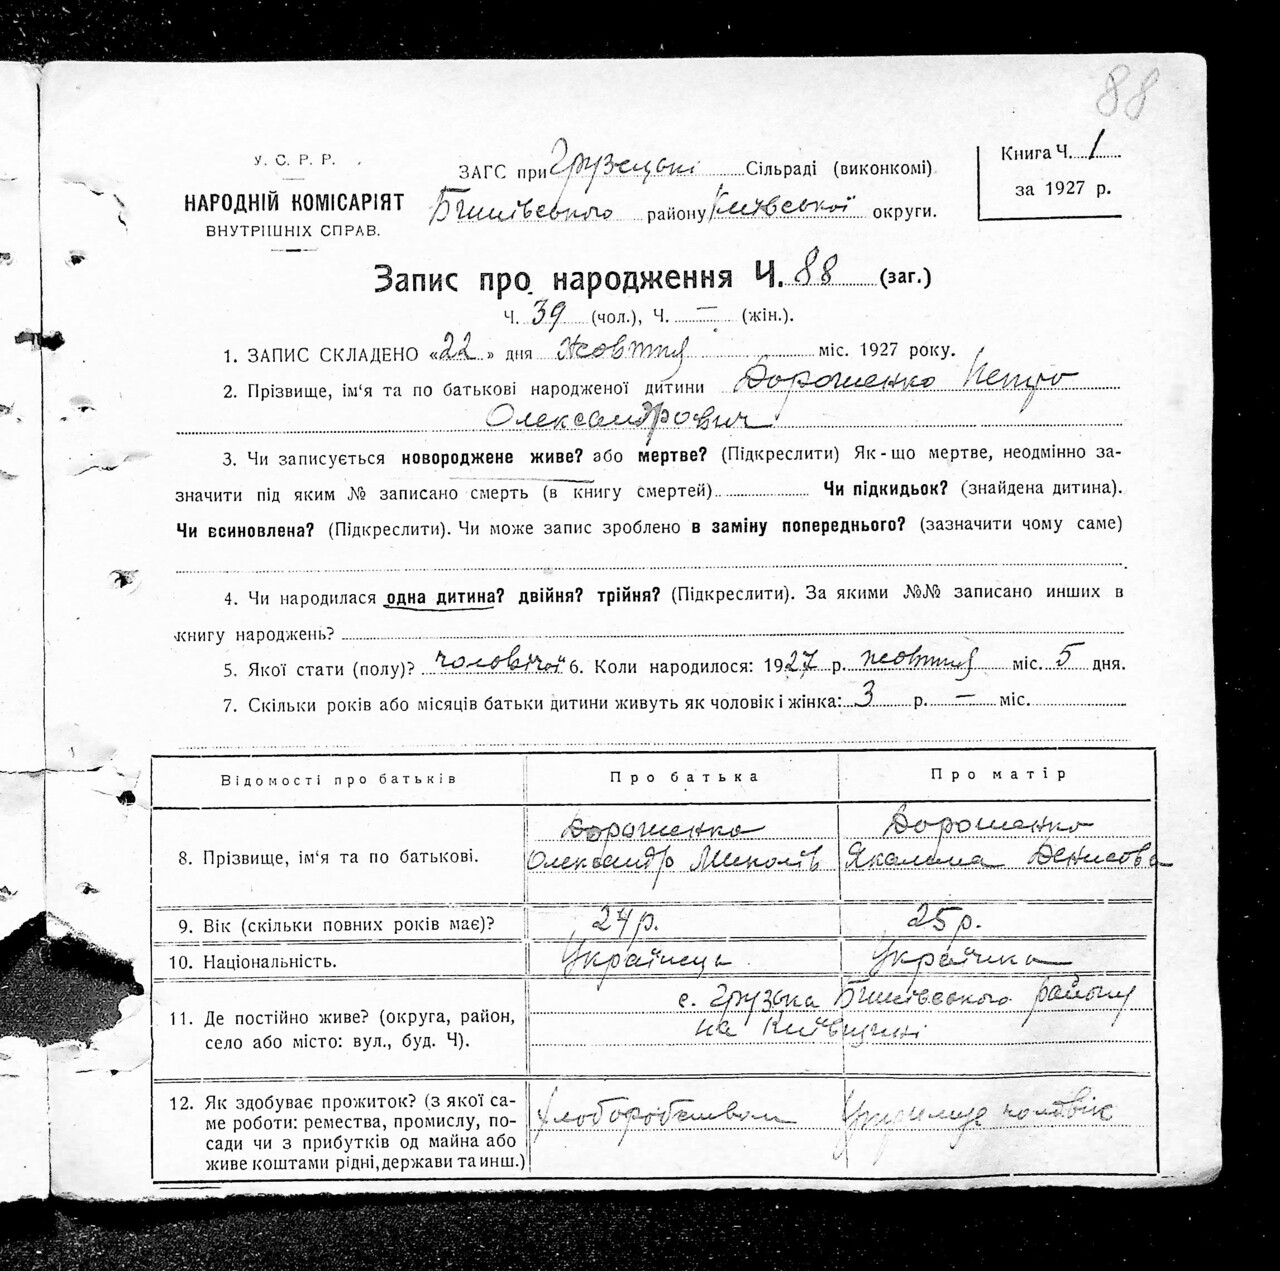 88
У. С. Р. Р.
НАРОДНІЙ КОМІСАРІЯТ
ВНУТРІШНІХ СПРАВ.
ЗАГС при Грузецькі Сільраді (виконкомі)
Бишівського району Київської округи.
Книга Ч. 1
за 1927 р.
Запис про народження Ч. 88 (заг.)
Ч. 39 (чол.), Ч. — (жін.).
1. ЗАПИС СКЛАДЕНО «22» дня жовтня міс. 1927 року.
2. Прізвище, ім‘я та по батькові народженої дитини Дорошенко Петро
Олександрович
3. Чи записується новороджене живе? або мертве? (Підкреслити) Як-що мертве, неодмінно за-
значити під яким № записано смерть (в книгу смертей) Чи підкидьок? (знайдена дитина).
Чи всиновлена? (Підкреслити). Чи може запис зроблено в заміну попереднього? (зазначити чому саме)
4. Чи народилася одна дитина? двійня? трійня? (Підкреслити). За якими №№ записано инших в
книгу народжень?
5. Якої стати (полу)? чоловічої 6. Коли народилося: 1927 р. жовтня міс. 5 дня.
7. Скільки років або місяців батьки дитини живуть як чоловік і жінка: 3 р. — міс.
Відомості про батьків Про батька Про матір
8. Прізвище, ім‘я та по батькові.
Дорошенко
Олександр Миколів
Дорошенко
Денисова
9. Вік (скільки повних років має)? 24 р. 25 р.
10. Національність. Українець Українка
11. Де постійно живе? (округа, район,
село або місто: вул., буд. Ч).
с. Грузька Бишівського району
на Київщині
12. Як здобуває прожиток? (з якої са-
ме роботи: ремества, промислу, по-
сади чи з прибутків од майна або
живе коштами рідні, держави та инш.)
Хлоборобством
Утримує чоловік